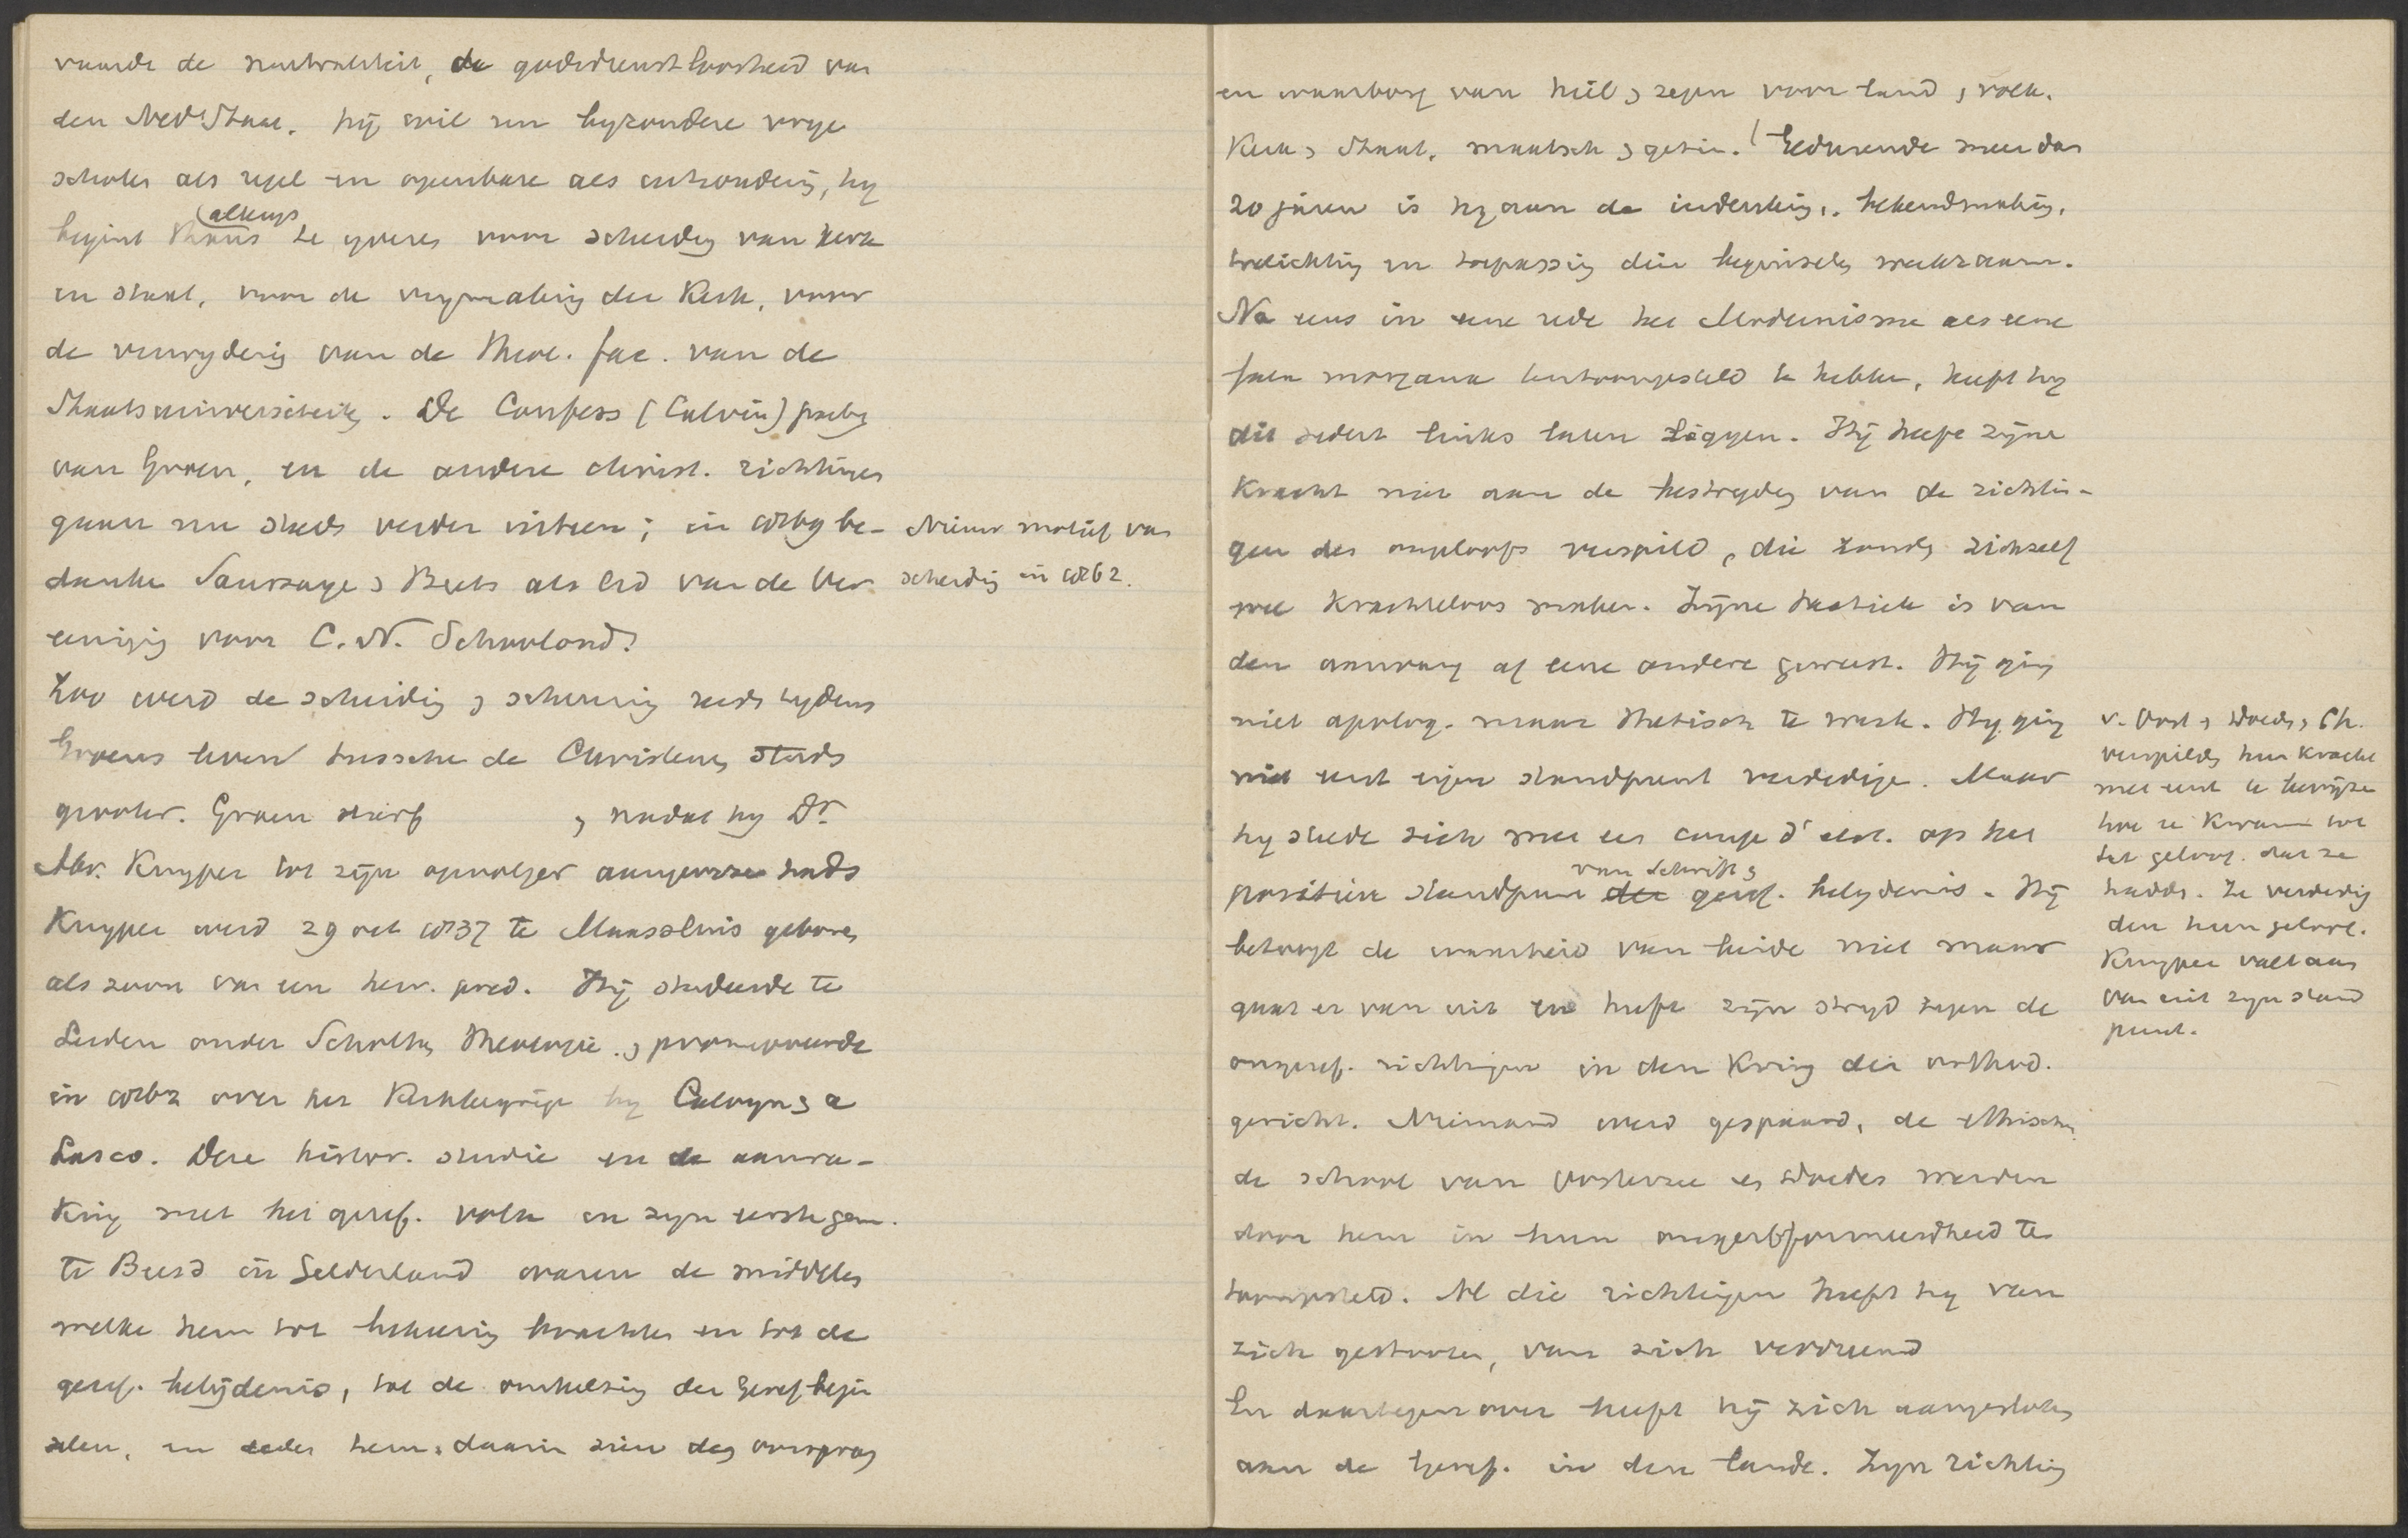 vaarde de neutraliteit, de godsdienstloosheid van
den Ned. Staat. Hij wil nu byzondere vrye
scholen als regel en openbare als uitzondering, hy
begint thans allengs te yveren voor scheiding van kerk
en staat, voor de vrymaking der Kerk, voor
de verwydering van de theol. fac. van de
Staatsuniversiteiten. De Confess (Calvin) party
van Groen, en de andere christ. richtingen
gaan nu steeds verder uiteen; in 1869 be-
dankte Saussaye & Beets als lid van de Ver
eeniging voor C. N. Schoolond.
Nieuw motief van
scheiding in 1862.
Zoo werd de scheiding & scheuring reeds tydens
Groens leven tussche de Christenen steeds
grooter. Groen stierf , nadat hy Dr.
Abr. Kuyper tot zijn opvolger aangewezen hadd
Kuyper werd 29 oct 1837 te Maassluis geboren
als zoon van een herv. pred. Hij studeerde te
Leiden onder Scholten, theologie. & promoveerde
in 1862 over het Kerkbegrip by Calvyn & a
Lasco. Deze histor. studie en de aanra-
king met het geref. volk in zyn eerste gem.
te Beesd in Gelderland waren de middelen
welke hem tot bekeering brachten en tot de
geref. belijdenis, tot de omhelzing der Geref begin
selen, en deden hem daarin zien den oorsprong
en waarborg van heil & zegen voor land & volk.
Kerk & Staat, maatsch & gezin. Gedurende meer dan
20 jaren is hy aan de indenking, bekendmaking,
toelichting en toepassing dier beginselen werkzaam.
Na eens in eene rede het Modernisme als eene
fata morgana tentoongesteld te hebben, heeft hy
dit sedert links laten liggen. Hij heeft zijne
kracht niet aan de bestryding van de richtin-
gen des ongeloofs verspild, die zouden zichzelf
wel krachteloos maken. Zijne tactiek is van
den aanvang af eene andere geweest. Hij ging
niet apolog. maar thetisch te werk. Hy ging
niet eerst eigen standpunt verdedige. Maar
hy stelde zich met een coup d'etat. op het
positieve standpunt der van Schrift & geref. belydenis. Hij
betoogt de waarheid van beide niet maar
gaat er van uit en heeft zijn stryd tegen de
ongeref. richtingen in den Kring der orthod.
gericht. Niemand werd gespaard, de ethische,
de school van Oosterzee en Doedes werden
door hem in hun ongereformeerdheid te
toongesteld. Al die richtingen heeft hy van
zich gestooten, van zich vervreemd
En daartegenover heeft hij zich aangesloten
aan de Geref. in den lande. Zyn richting
v. Oost. & Doedes, Ch.
verspilde hun kracht
met eerst te bewijzen
hoe ze kwamen tot
het geloof. dat ze
hadde. Ze verdedig
den hun geloof.
Kuyper valt aan
van uit zyn stand
punt.